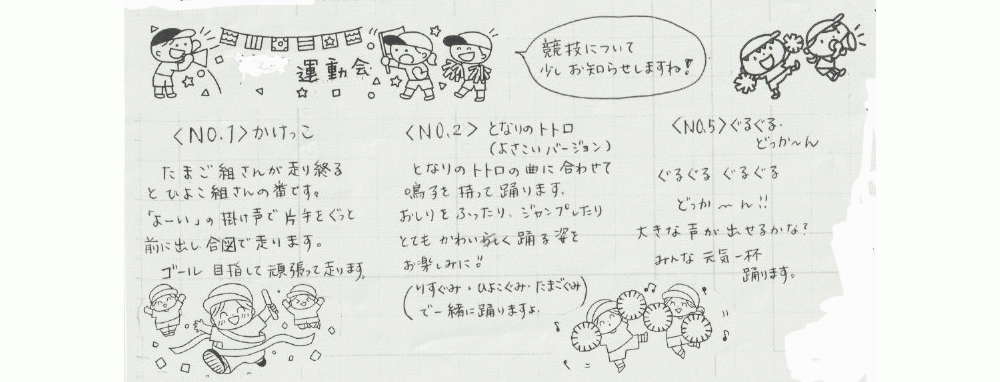 運動会
競技について
少しお知らせしますね!
〈NO.1〉かけっこ
たまご組さんが走り終る
とひよこ組さんの番です。
「よーい」の掛け声で片手をぐっと
前に出し合図で走ります。
ゴール目指して頑張って走ります。
〈NO.2〉となりのトトロ
(よさこいバージョン)
となりのトトロの曲に合わせて
鳴子を持って踊ります。
おしりをふったり、ジャンプしたり
とてもかわいらしく踊る姿を
お楽しみに!!
(りすぐみ・ひよこぐみ・たまごぐみ
で一緒に踊りますよ.)
〈NO.5〉ぐるぐる・
どっか〜ん
ぐるぐる ぐるぐる
どっか〜ん!!
大きな声が出せるかな?
みんな元気一杯
踊ります。